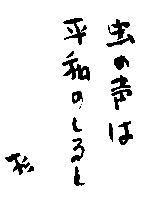 虫の声は
平和のしるし
杉